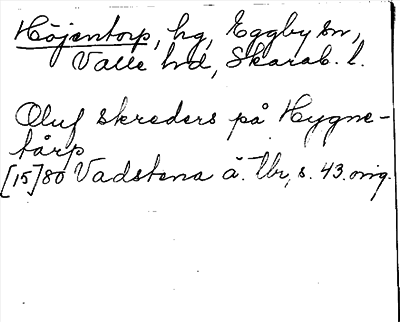 Höjentorp, hg, Eggby sn,
Valle hd, Skarab. l.
Oluf skreders på Hygne-
tårp
[15]80 Vadstena ä. Ur, s. 43. orig.